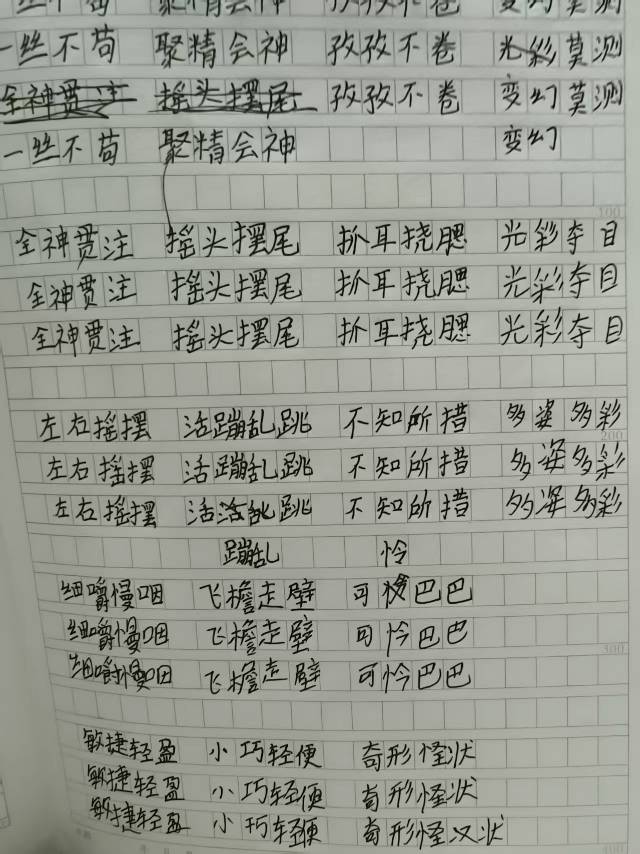 一丝不苟 聚精会神 孜孜不卷 变幻莫测
一丝不苟 聚精会神 孜孜不卷 光彩莫测
全神贯注 摇头摆尾 孜孜不卷 变幻莫测
一丝不苟 聚精会神 变幻
100
全神贯注 摇头摆尾 抓耳挠腮 光彩夺目
全神贯注 摇头摆尾 抓耳挠腮 光彩夺目
全神贯注 摇头摆尾 抓耳挠腮 光彩夺目
左右摇摆 活蹦乱跳 不知所措 多姿多彩
200
左右摇摆 活蹦乱跳 不知所措 多姿多彩
左右摇摆 活活乱跳 不知所措 多姿多彩
蹦乱 怜
细嚼慢咽 飞檐走壁 可怜巴巴
细嚼慢咽 飞檐走壁 可怜巴巴
300
细嚼慢咽 飞檐走壁 可怜巴巴
敏捷轻盈 小巧轻便 奇形怪状
敏捷轻盈 小巧轻便 奇形怪状
敏捷轻盈 小巧轻便 奇形怪状